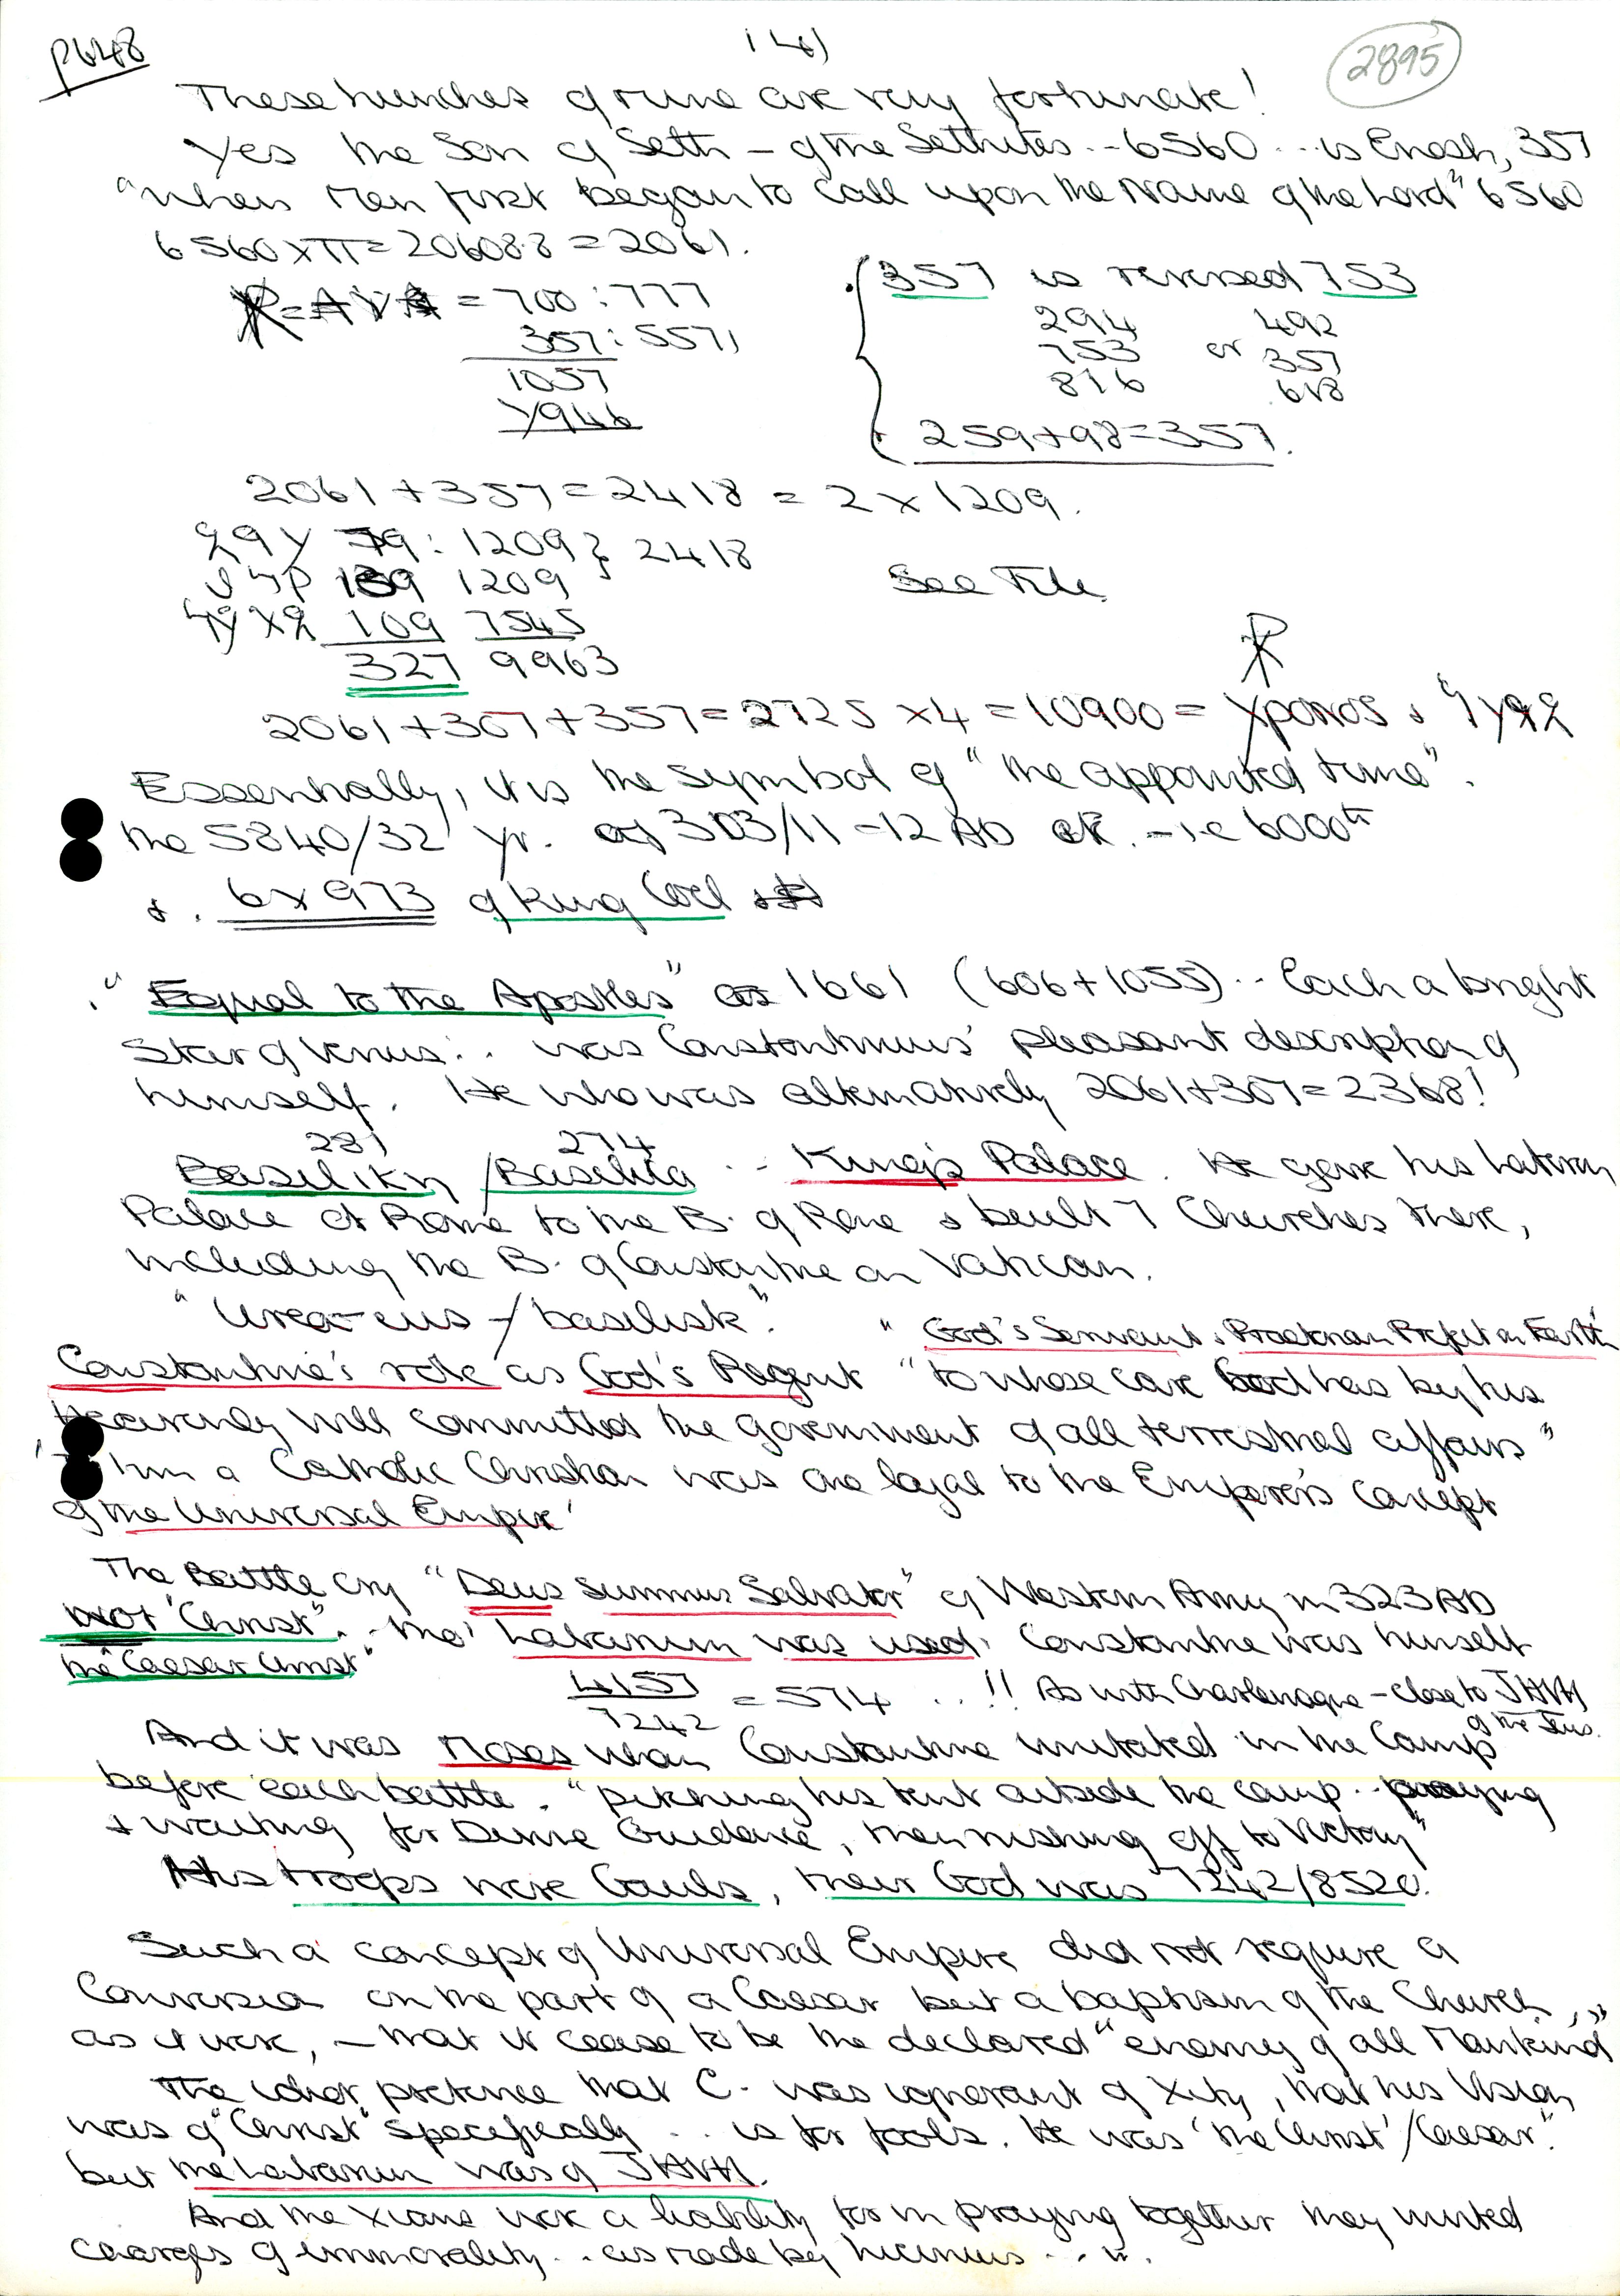 p648
14)
2895
These hunches of mine are very fortunate!
Yes the Son of Seth – of the Sethites -- 6560 ... is Enosh, 357
"when Men first began to call upon the Name of the Lord" 6560
6560 x π = 20608.8 = 2061.
= 700 : 777
357 : 5571
1057
357 is reversed 753
294 492
753 or 357
816 618
259+98=357.
2061 + 357 = 2418 = 2 x 1209.
79 : 1209 } 2418
139 1209
See File
109 7545
327 9963
2061+307+357=2725 x4 = 10900 = Χρονος &
Essentially, it is the symbol of "the appointed time".
the 5840/32 yr. as 303/11-12 AD etc. - i.e 6000th
& . 6x973 of King Coel
. "Equal to the Apostles" as 1661 (606+1055) .. Each a bright
Star of Venus: . was Constantinus' pleasant description of
himself. He who was alternatively 2061+307=2368!
281 274
Basilikη / Basilika .. King's Palace. He gave his Lateran
Palace at Rome to the B. of Rome & built 7 Churches there,
including the B. of Constantine on Vatican.
"Urea-eus / basilisk". "God's Servant & Praetorian Prefect on Earth
Constantine's role as God's Regent "to whose care God has by his
Heavenly will committed the government of all terrestrial affairs"
him a Catholic Christian was one loyal to the Emperor's concept
of the Universal Empire'
The Battle cry "Deus Summus Salvator" of Western Army in 323 AD
Not "Christ". tho' Labarum was used. Constantine was himself
the "Caesar Christ"
4157
7242 = 574 .. !! As with Charlemagne – close to JHVH
of the Jews.
And it was Moses whom Constantine imitated in the Camp
before each battle. "pitching his tent outside the camp .. praying
& waiting for Divine Guidance, then rushing off to Victory"
His troops were Gauls, their God was 7242/8520.
Such a concept of Universal Empire did not require a
Conversion on the part of a Caesar but a baptism of the Church,
as it were, – that it cease to be the declared "enemy of all Mankind"
The idiot pretence that C. was ignorant of Xity, that his Vision
was of "Christ" specifically .. is for fools. He was 'the Christ'/Caesar".
but the Labarum was of JHVH.
And the Xians were a liability for in praying together they invited
charges of immorality .. as made by Licinius ...